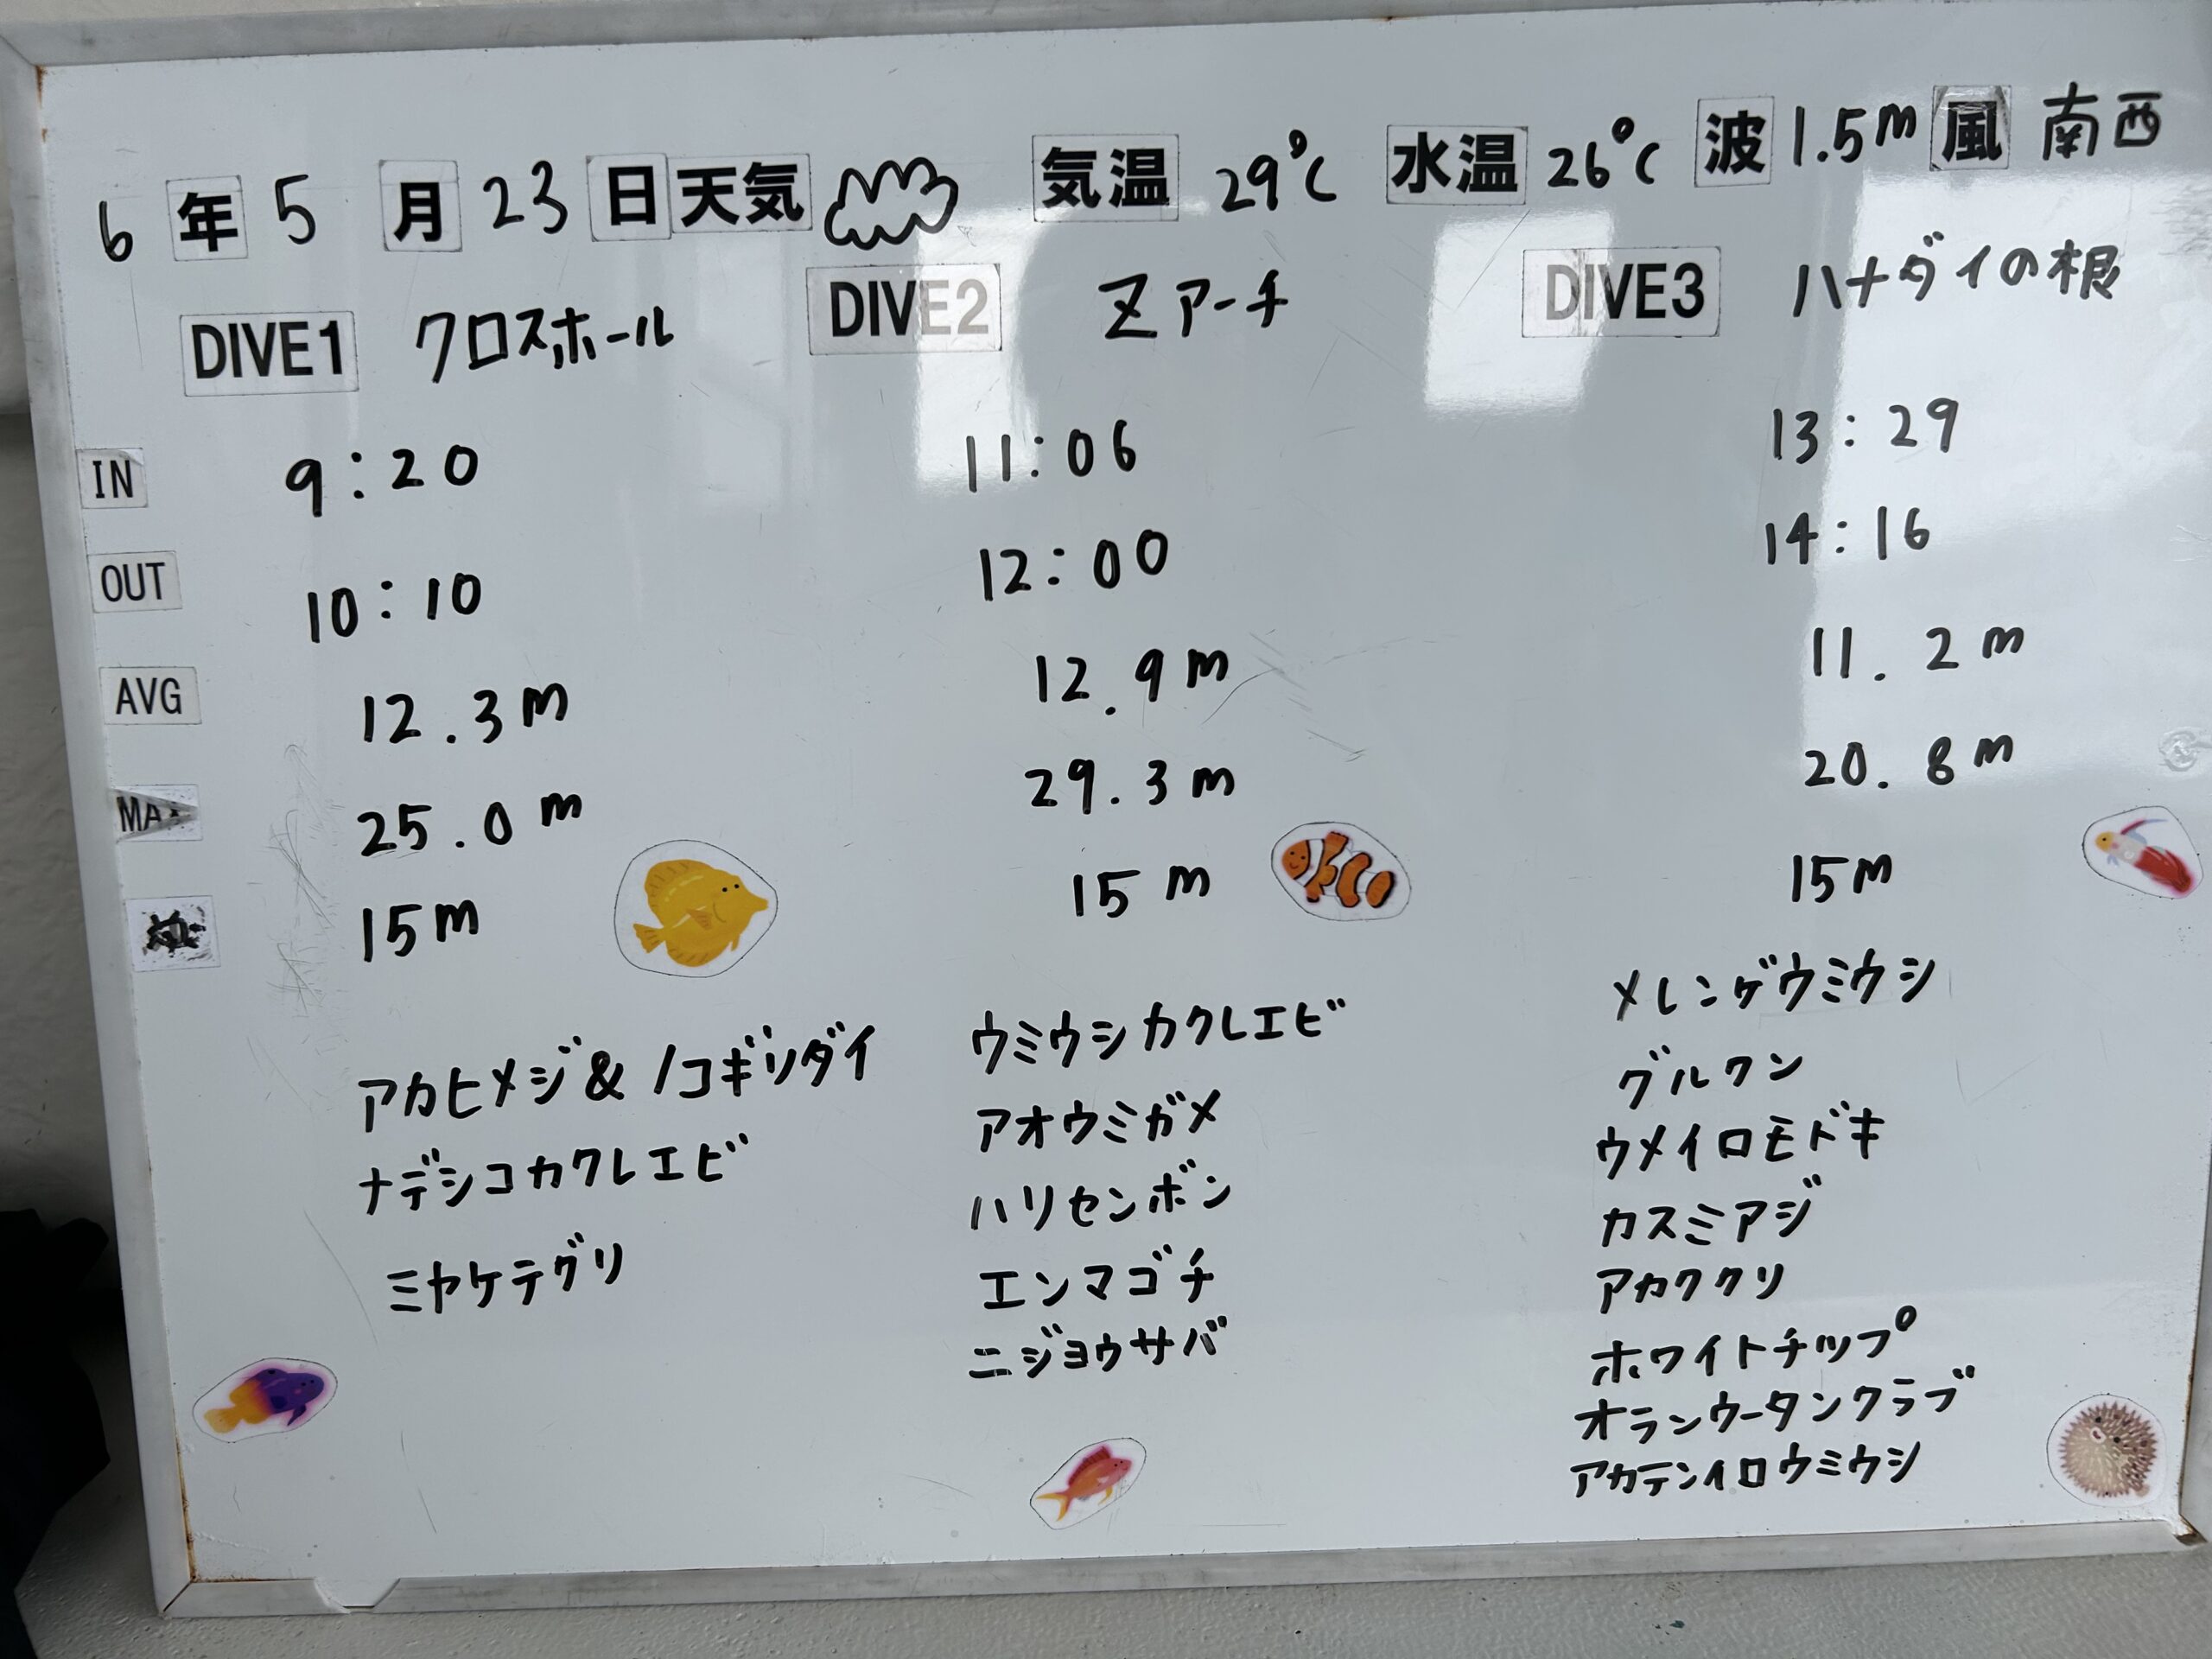 6年5月23日 天気 気温 29℃ 水温 26℃ 波 1.5m 風 南西
DIVE1 クロスホール
DIVE2 Zアーチ
DIVE3 ハナダイの根
IN 9:20 11:06 13:29
OUT 10:10 12:00 14:16
AVG 12.3m 12.9m 11.2m
MAX 25.0m 29.3m 20.8m
15m 15m 15m
アカヒメジ&ノコギリダイ
ナデシコカクレエビ
ミヤケテグリ
ウミウシカクレエビ
アオウミガメ
ハリセンボン
エンマゴチ
ニジョウサバ
メレンゲウミウシ
グルクン
ウメイロモドキ
カスミアジ
アカククリ
ホワイトチップ
オランウータンクラブ
アカテンイロウミウシ